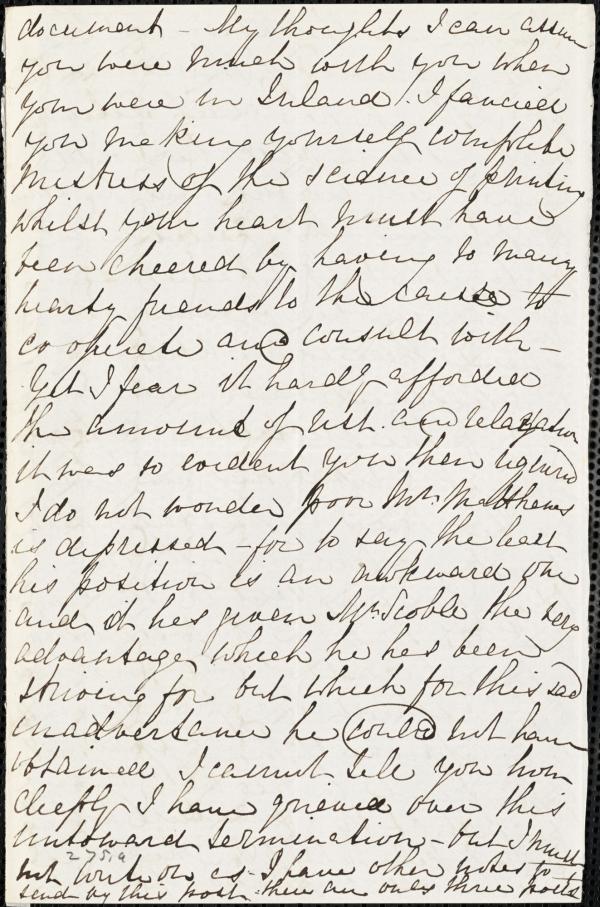 document - My thoughts I can assure
you were much with you when
you were in Ireland. I fancied
you making yourself complete
mistress of the science of printing
whilst your heart must have
been cheered by having so many
hearty friends to the cause to
co operate and consult with -
Yet I fear it hardly afforded
the amount of rest and relaxation
it was so evident you then required
I do not wonder poor Mr. Matthews
is depressed - for to say the least
his position is an awkward one
and it has given Mr. Scoble the very
advantage which he has been
striving for but which for this sad
inadvertance he could not have
obtained I cannot tell you how
deeply I have grieved over this
untoward termination - but I must
not write on as I have other notes to
send by this post - there are only three posts